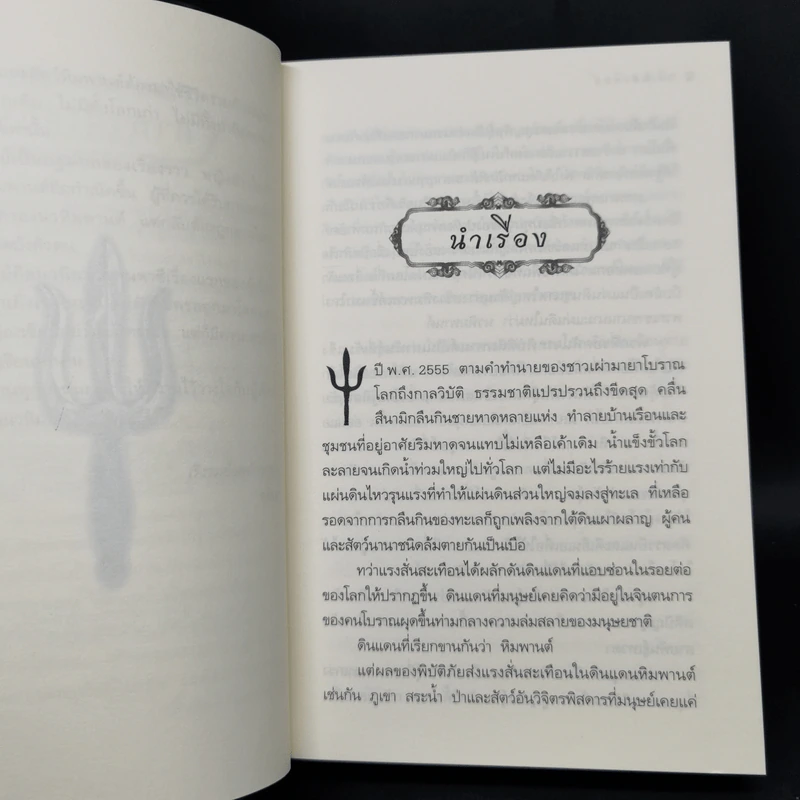 นำเรื่อง
ปี พ.ศ. 2555 ตามคำทำนายของชาวเผ่ามายาโบราณ
โลกถึงกาลวิบัติ ธรรมชาติแปรปรวนถึงขีดสุด คลื่น
สึนามิกลืนกินชายหาดหลายแห่ง ทำลายบ้านเรือนและ
ชุมชนที่อยู่อาศัยริมหาดจนแทบไม่เหลือเค้าเดิม น้ำแข็งขั้วโลก
ละลายจนเกิดน้ำท่วมใหญ่ไปทั่วโลก แต่ไม่มีอะไรร้ายแรงเท่ากับ
แผ่นดินไหวรุนแรงที่ทำให้แผ่นดินส่วนใหญ่จมลงสู่ทะเล ที่เหลือ
รอดจากการกลืนกินของทะเลก็ถูกเพลิงจากใต้ดินเผาผลาญ ผู้คน
และสัตว์นานาชนิดล้มตายกันเป็นเบือ
ทว่าแรงสั่นสะเทือนได้ผลักดันดินแดนที่แอบซ่อนในรอยต่อ
ของโลกให้ปรากฏขึ้น ดินแดนที่มนุษย์เคยคิดว่ามีอยู่ในจินตนการ
ของคนโบราณผุดขึ้นท่ามกลางความล่มสลายของมนุษยชาติ
ดินแดนที่เรียกขานกันว่า หิมพานต์
แต่ผลของพิบัติภัยส่งแรงสั่นสะเทือนในดินแดนหิมพานต์
เช่นกัน ภูเขา สระน้ำ ป่าและสัตว์อันวิจิตรพิสดารที่มนุษย์เคยแค่